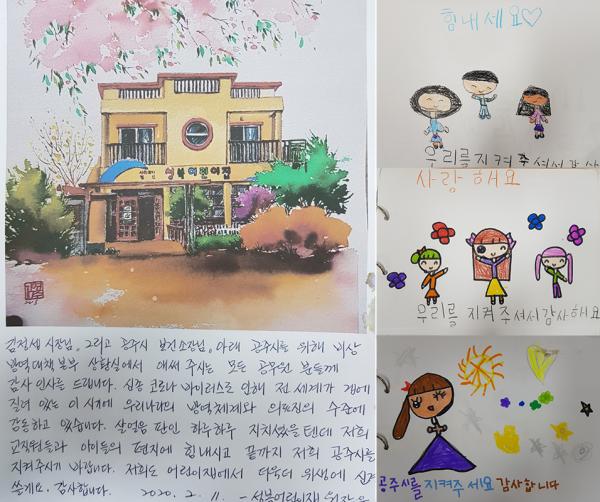 어린이집
김정섭 시장님, 그리고 공주시 보건소장님, 아래 공주시를 위해 비상
방역대책본부 상황실에서 애써 주시는 모든 공무원 분들께
감사 인사를 드립니다. 신종 코로나 바이러스로 인해 전 세계가 겁에
질려 있는 이 시기에 우리나라의 방역체계와 의료진의 수준에
감동하고 있습니다. 살얼음 판인 하루하루 지치셨을텐데 저희
교직원들과 아이들의 편지에 힘내시고 끝까지 저희 공주시를
지켜주시기 바랍니다. 저희도 어린이집에서 더욱더 위생에 신경
쓸게요. 감사합니다. 2020. 2. 11.
힘내세요♡
우리를 지켜주셔서 감사
사랑해요
우리를 지켜주셔서 감사해요
공주시를 지켜주세요 감사합니다